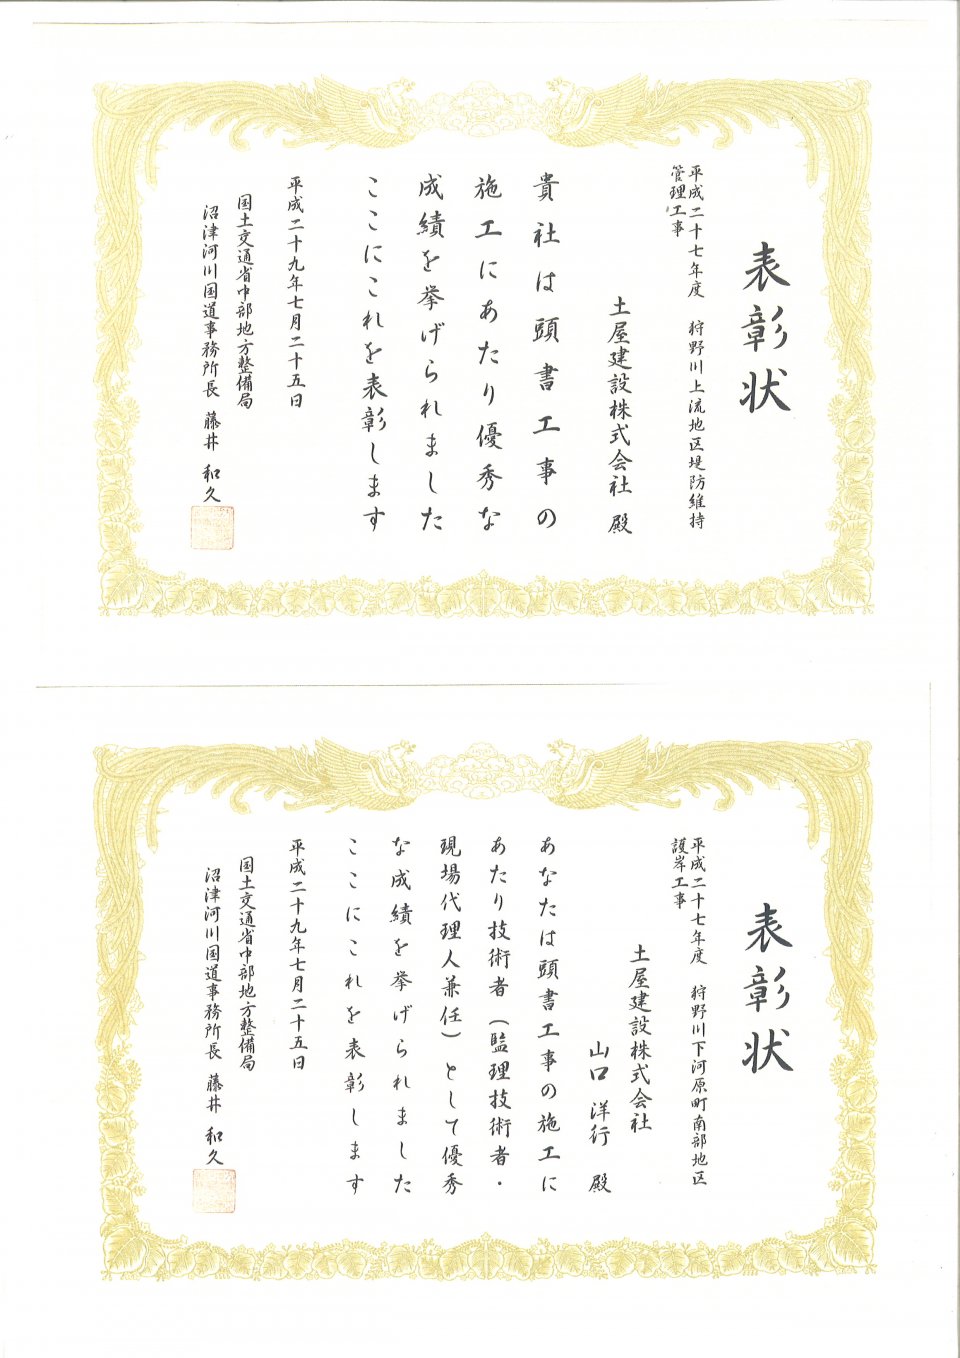 表彰状
平成二十七年度 狩野川上流地区堤防維持
管理工事
土屋建設株式会社 殿
貴社は頭書工事の
施工にあたり優秀な
成績を挙げられました
ここにこれを表彰します
平成二十九年七月二十五日
国土交通省中部地方整備局
沼津河川国道事務所長 藤井 和久
表彰状
平成二十七年度 狩野川下河原町南部地区
護岸工事
土屋建設株式会社
山口 洋行 殿
あなたは頭書工事の施工に
あたり技術者(監理技術者・
現場代理人兼任)として優秀
な成績を挙げられました
ここにこれを表彰します
平成二十九年七月二十五日
国土交通省中部地方整備局
沼津河川国道事務所長 藤井 和久